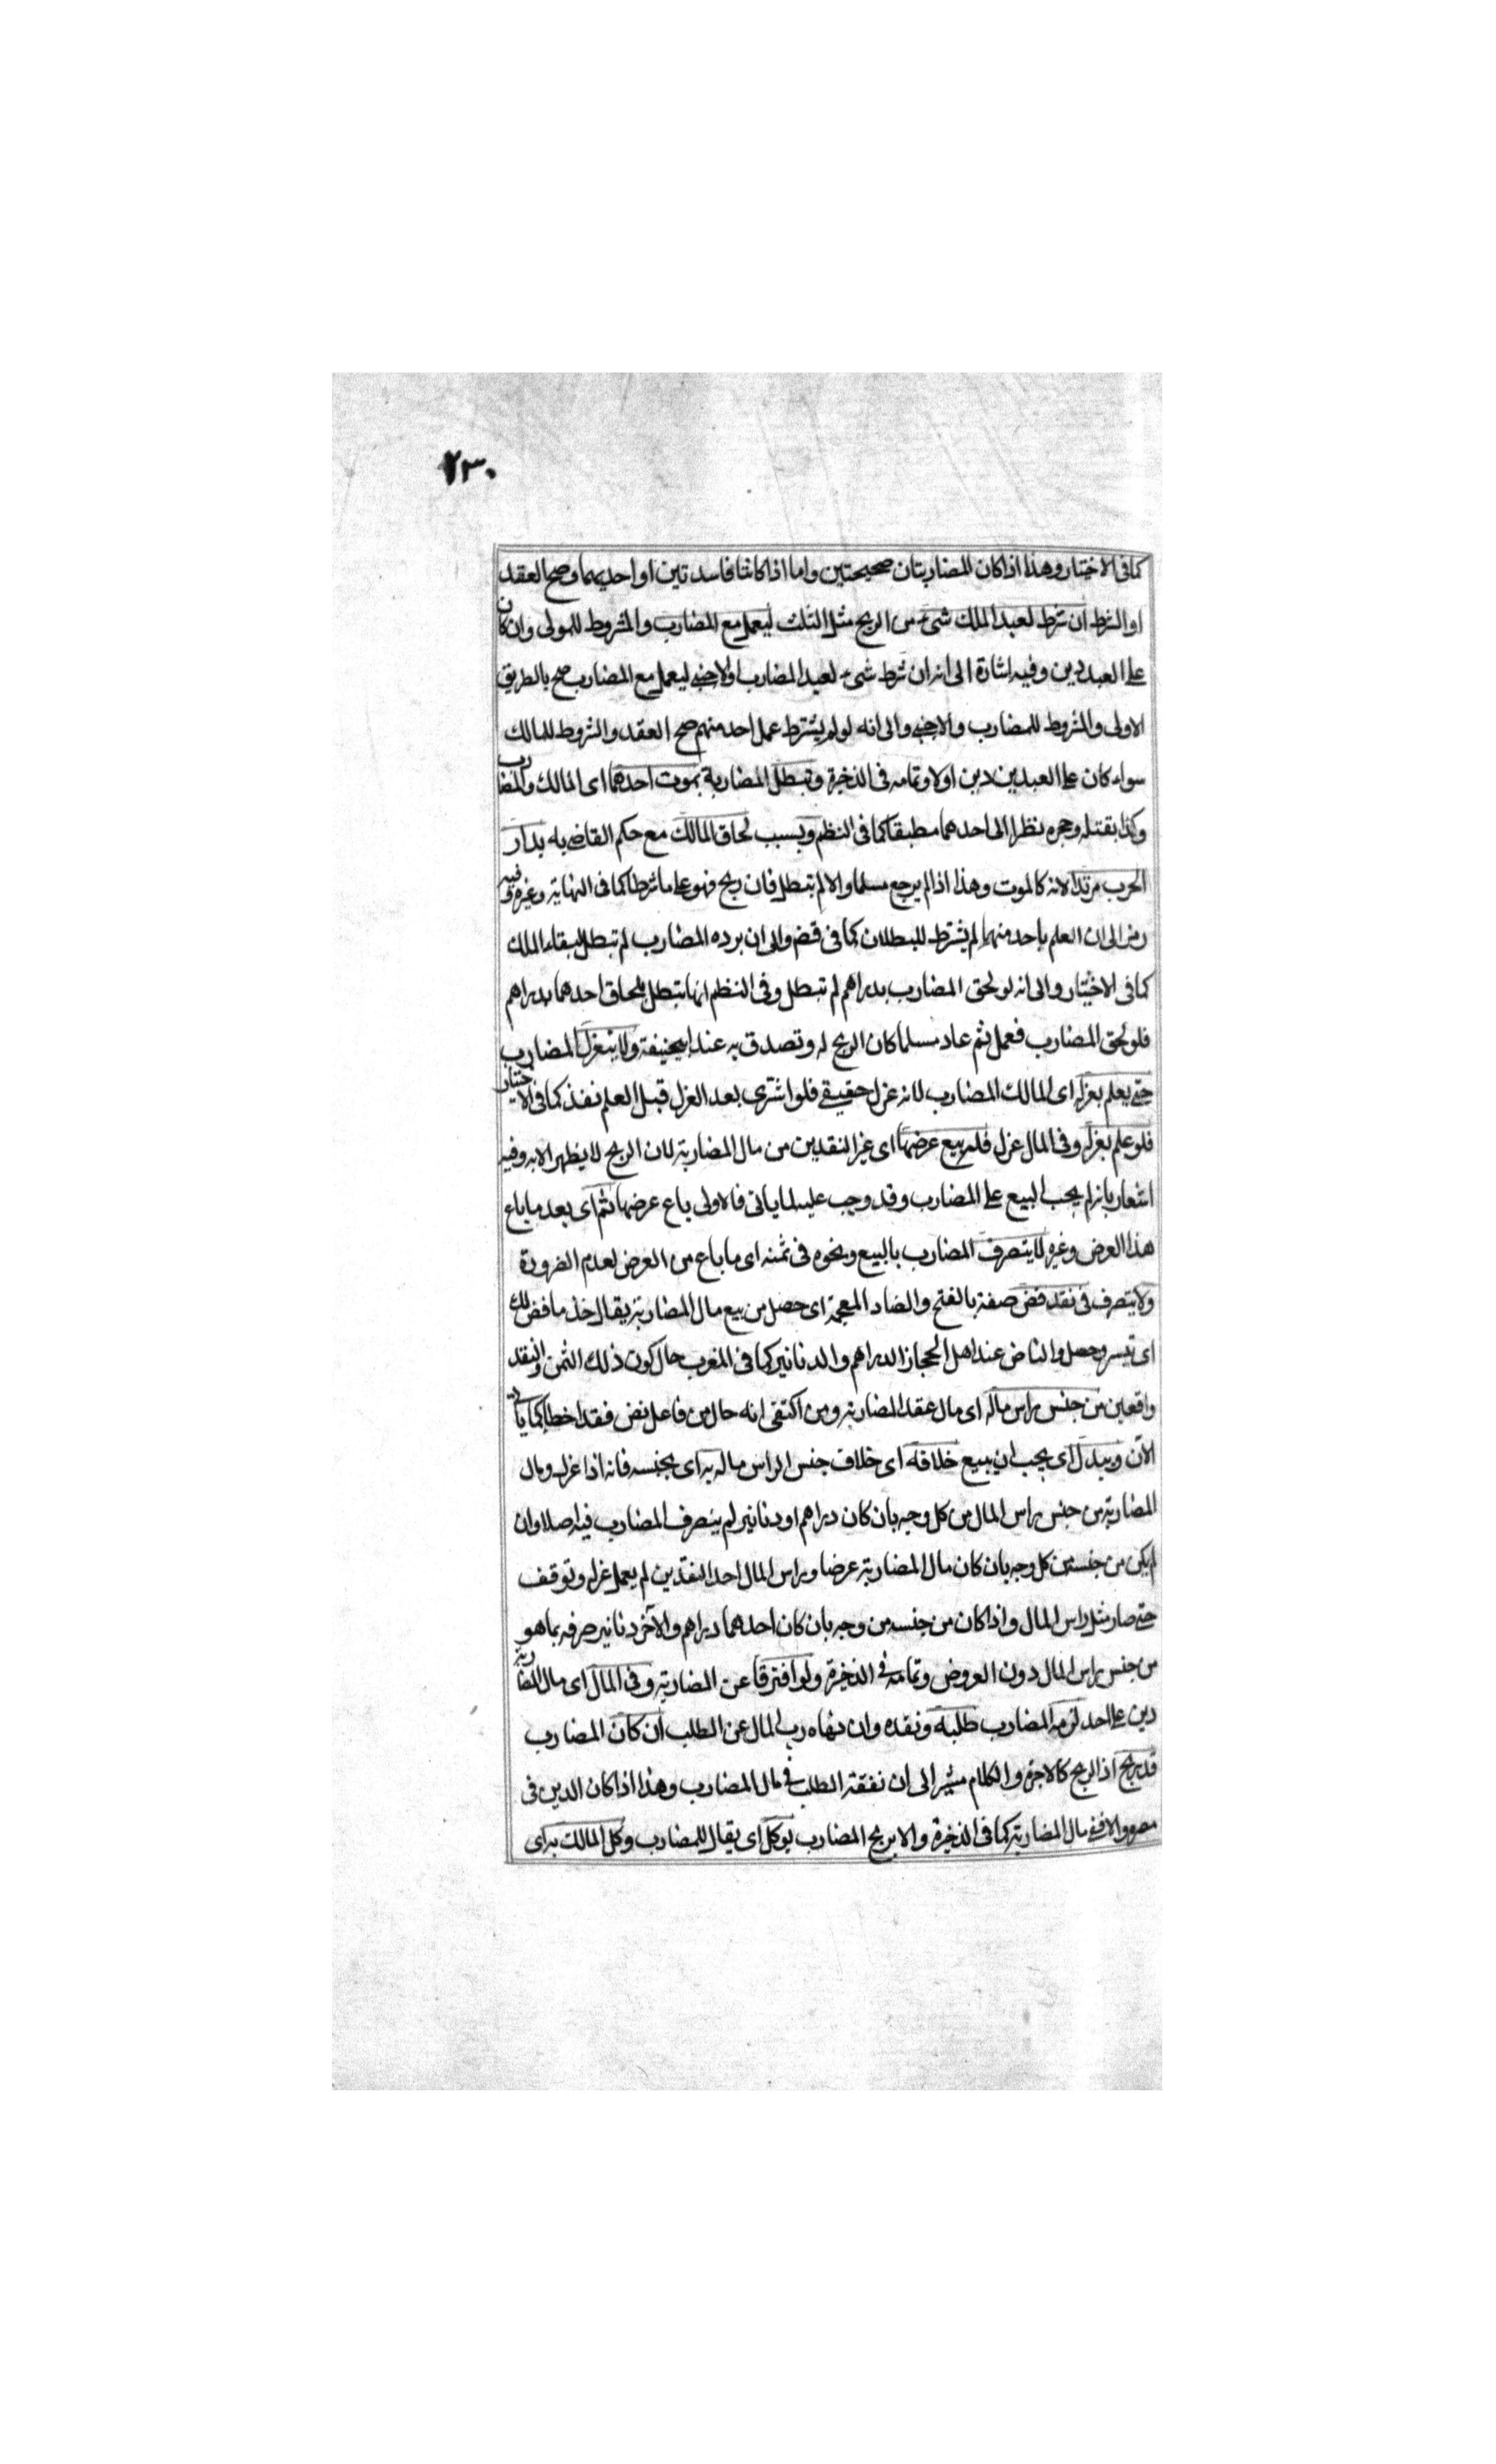 ٢٣٠
كما فى الاختيار وهذا اذا كان المضاربتان صحيحتين واما اذا كانتا فاسدتين او احديهما وصح العقد
او الشرط ان شرط لعبد الملك شىء من الربح مثل الثلث ليعمل مع المضارب والمشروط للمولى وان كان
على العبد دين وفيه اشارة الى انه ان شرط شىء لعبد المضارب او لاجنبى ليعمل مع المضارب صح بالطريق
الاولى والمشروط للمضارب والاجنبى والى انه لو لم يشترط عمل احد منهم صح العقد والشروط للمالك
سواء كان على العبدين دين اولا وتمامه فى الذخيرة وتبطل المضاربة بموت احدهما اى المالك والمضارب
وكذا بقتله وحجره نظرا الى احدهما مطبقا كما فى النظم وبسبب لحاق المالك مع حكم القاضى به بدار
الحرب مرتدا لانه كالموت وهذا اذا لم يرجع مسلما والا لم تبطل فان ربح فهو على ما شرطا كما فى النهاية وغيره وفيه
رمز الى ان العلم باحد منهما لم يشترط للبطلان كما فى قض والى ان برده المضارب لم تبطل لبقاء الملك
كما فى الاختيار والى انه لو لحق المضارب بدراهم لم تبطل وفى النظم انها تبطل بلحاق احدهما بدراهم
فلو لحق المضارب فعمل ثم عاد مسلما كان الربح له وتصدق به عند ابيحنيفة ولا ينعزل المضارب
حتى يعلم بعزله اى المالك المضارب لانه عزل حقيقى فلو اشترى بعد العزل قبل العلم نفذ كما فى الاختيار
فلو علم بعزله وفى المال عزل فله بيع عرضها اى غير النقدين من مال المضاربة لان الربح لا يظهر الا به وفيه
اشعار بانه لم يجب البيع على المضارب وقد وجب عليه لما ياتى فالاولى باع عرضها ثم اى بعد ما باع
هذا العرض وغيره لا يتصرف المضارب بالبيع ونحوه فى ثمنه اى ما باع من العرض لعدم الضرورة
ولا يتصرف فى نقد فض صفة بالفتح والضاد المعجمة اى حصل من بيع مال المضاربة يقال خذ ما فض لك
اى تيسر وحصل والناض عند اهل الحجاز الدراهم والدنانير كما فى المغرب حال كون ذلك الثمن والنقد
واقعين من جنس راس ماله اى مال عقد المضاربة ومن اكتفى انه حال من فاعل نض فقد اخطا كما ياتى
الآن ويبدل اى يجب ان يبيع خلافه اى خلاف جنس الراس ماله به اى بجنسه فانه اذا عزله ومال
المضاربة من جنس راس المال من كل وجه بان كان دراهم او دنانير لم يتصرف المضارب فيه اصلا وان
لم يكن من جنسه من كل وجه بان كان مال المضاربة عرضا وراس المال احد النقدين لم يعمل عزله وتوقف
حتى صار مثل راس المال واذا كان من جنسه من وجه بان كان احدهما دراهم والآخر دنانير صرفه بما هو
من جنس راس المال دون العروض وتمامه فى الذخيرة ولو افترقا عن المضاربة وفى المال اى مال المضاربة
دين على احد لزمه المضارب طلبه ونقده وان نهاه رب المال عن الطلب ان كان المضارب
قد ربح اذ الربح كالاجرة والكلام مشير الى ان نفقة الطلب فى مال المضارب وهذا اذا كان الدين فى
مصره والا ففى مال المضاربة كما فى الذخيرة والا يربح المضارب يوكل اى يقال للمضارب وكل المالك به اى